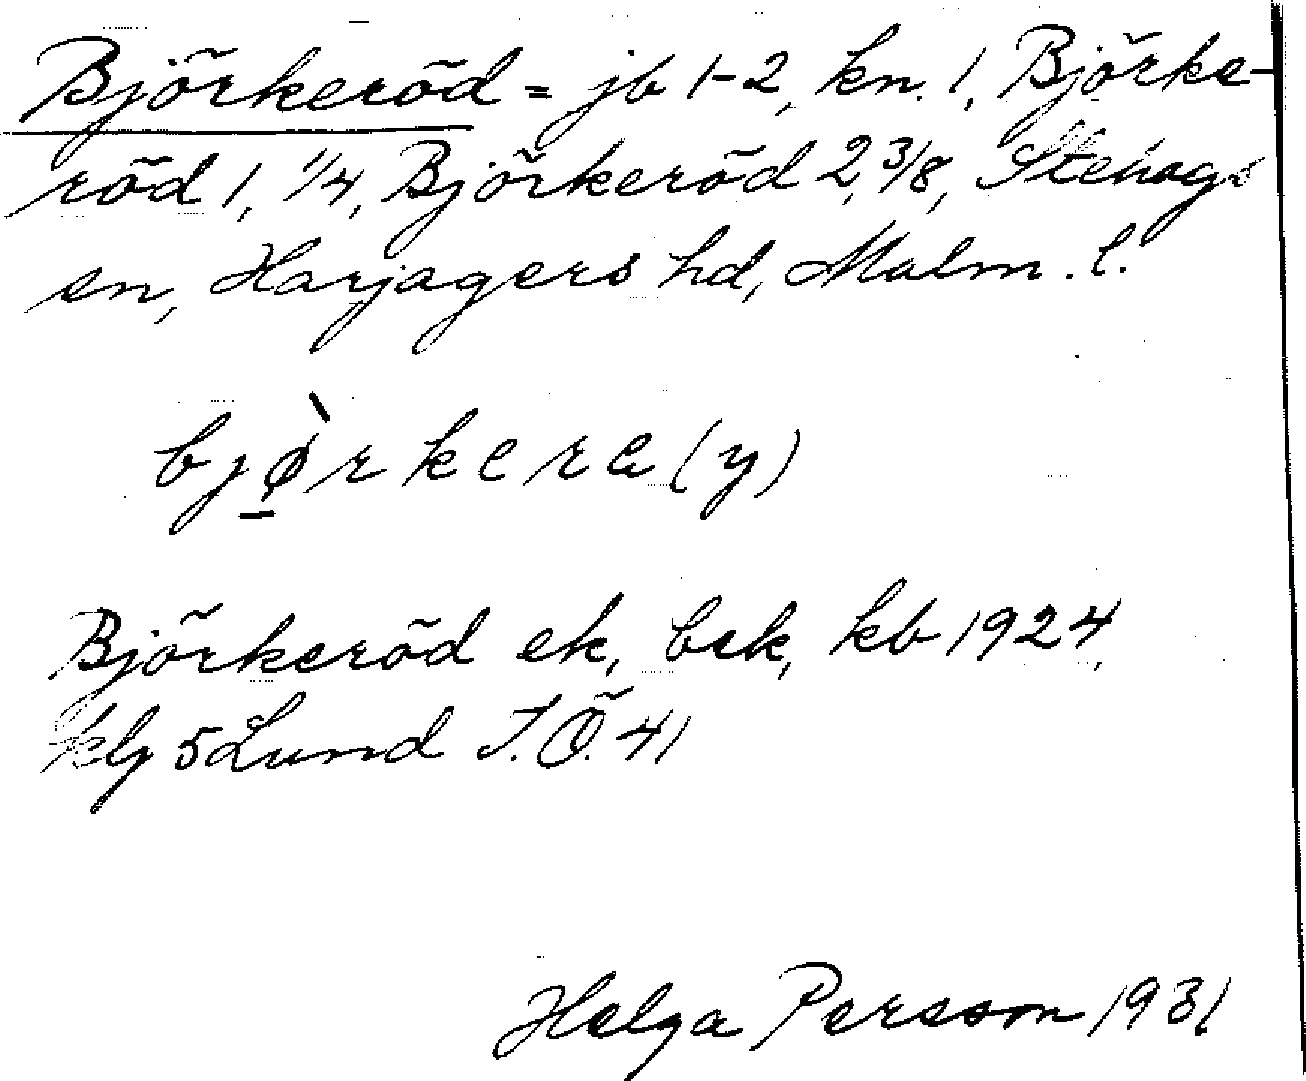 Björkeröd = jb 1-2, kn. 1, Björke-
röd 1, 1/4, Björkeröd 2, 3/8, Stehags
sn, Harjagers hd, Malm. l.
bjø̀rkere(y)
Björkeröd ek, bek, kb 1924,
klg 5 Lund T.Ö. 41
Helga Persson 1931